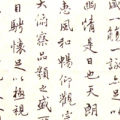 觴一詠亦足
幽情是日也天朗
惠風和暢仰觀宇
大俯察品類之盛
目騁懷足以極視